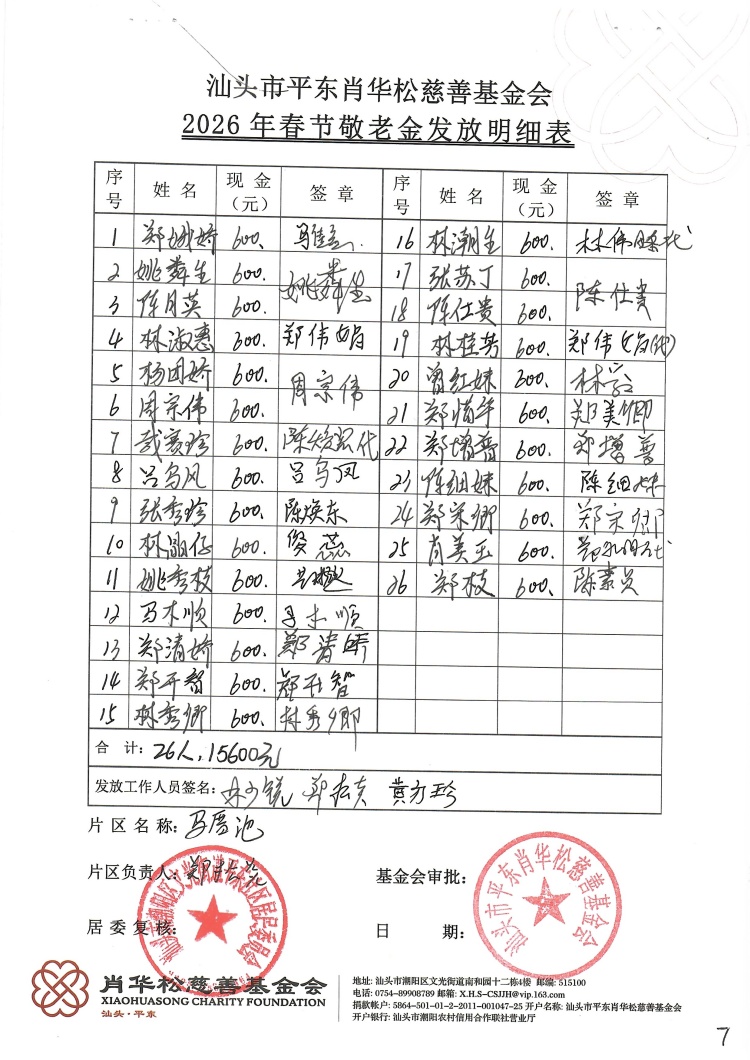 汕头市平东肖华松慈善基金会
2026年春节敬老金发放明细表
序号 姓名 现金（元） 签章 序号 姓名 现金（元） 签章
1 郑娥娇 600. 16 林潮生 600. 林伟
2 姚舜生 600. 姚舜生 17 张苏丁 600.
3 陈月英 600. 18 陈仕贵 600. 陈仕贵
4 林淑惠 600. 郑伟娟 19 林桂芳 600. 郑伟娟(代)
5 杨团娇 600. 周宗伟 20 曾红妹 600. 林
6 周宗伟 600. 21 郑 600. 郑美卿
7 赛珍 600. 陈 代 22 郑增普 600. 郑增普
8 吕乌凤 600. 吕乌凤 23 陈细妹 600. 陈细妹
9 张秀珍 600. 陈焕东 24 郑宋卿 600. 郑宗卿
10 林 600. 25 肖美玉 600.
11 姚秀枝 600. 26 郑枝 600. 陈素贞
12 马木顺 600. 马木顺
13 郑清娇 600. 郑清娇
14 郑开智 600. 智
15 林秀卿 600. 林秀卿
合 计: 26人，15600元
发放工作人员签名: 郑 黄
片区名称: 马 池
片区负责人: 郑
基金会审批:
居委复核:
日 期:
汕头市平东肖华松慈善基金会
肖华松慈善基金会
XIAOHUASONG CHARITY FOUNDATION
汕头·平东
地址: 汕头市潮阳区文光街道南和园十二栋4楼 邮编: 515100
电话: 0754-89908789 邮箱: X.H.S-CSJJH@vip.163.com
捐款帐户: 5864-501-01-2-2011-001047-25 开户名称: 汕头市平东肖华松慈善基金会
开户银行: 汕头市潮阳农村信用合作联社营业厅
7